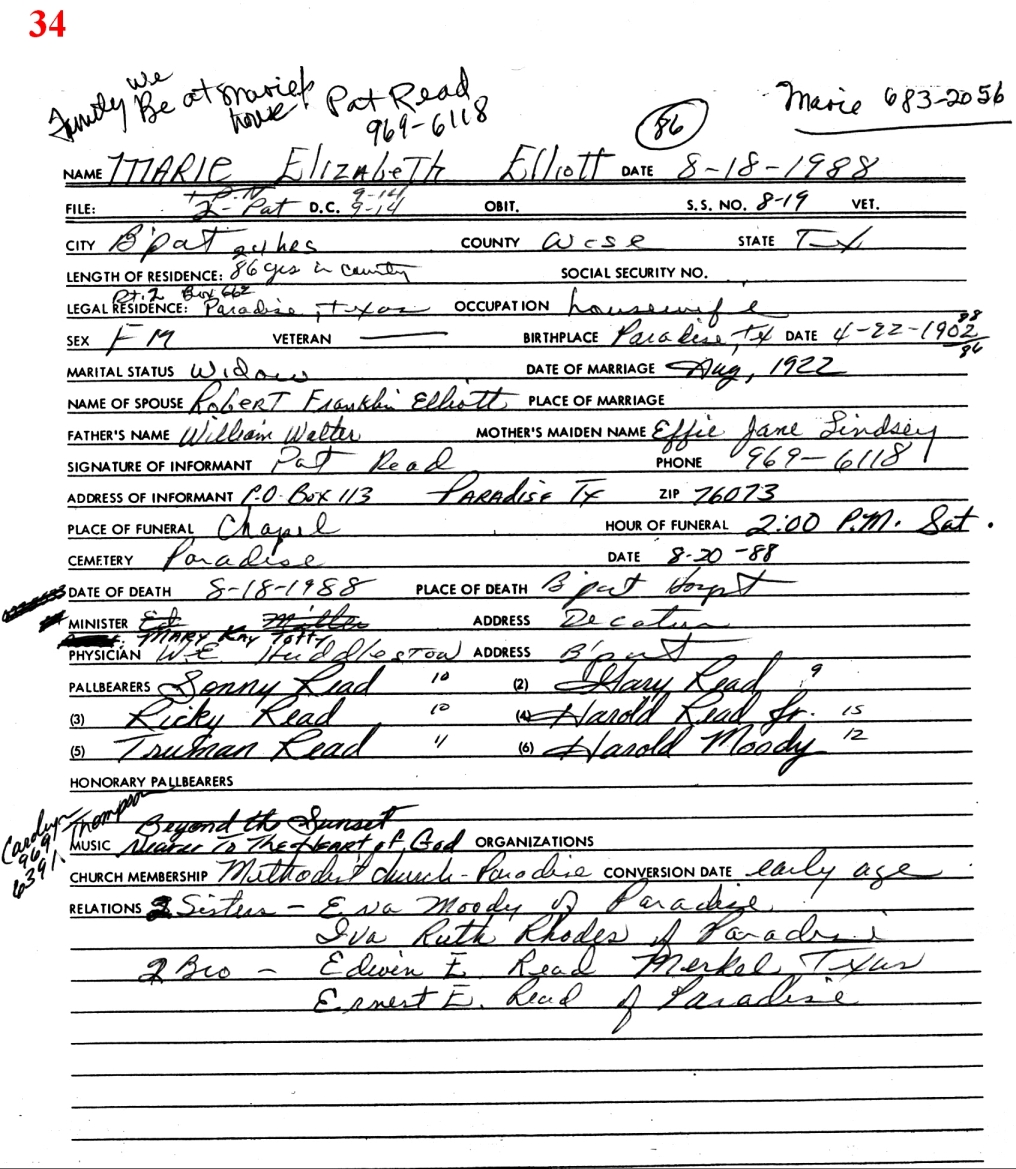 34
we
Family Be at Marie's house
Pat Read
969-6118
86
Marie 683-2056
NAME MARIE Elizabeth Elliott DATE 8-18-1988
9-14
FILE: 2-Pat D.C. 9-14 OBIT. S.S. NO. 8-19 VET.
CITY B'port COUNTY Wise STATE TX
LENGTH OF RESIDENCE: 86 yrs in county SOCIAL SECURITY NO.
Rt. 2 Box 662
LEGAL RESIDENCE: Paradise, Texas OCCUPATION housewife
SEX F M VETERAN BIRTHPLACE Paradise, TX DATE 4-22-1902
88
86
MARITAL STATUS Widow DATE OF MARRIAGE Aug, 1922
NAME OF SPOUSE Robert Franklin Elliott PLACE OF MARRIAGE
FATHER'S NAME William Walter MOTHER'S MAIDEN NAME Effie Jane Lindsey
SIGNATURE OF INFORMANT Pat Read PHONE 969-6118
ADDRESS OF INFORMANT P.O. Box 113 PARADISE TX ZIP 76073
PLACE OF FUNERAL Chapel HOUR OF FUNERAL 2:00 P.M. Sat.
CEMETERY Paradise DATE 8-20-88
DATE OF DEATH 8-18-1988 PLACE OF DEATH B'port Hospt
MINISTER Ed ADDRESS Decatur
MARY KAY TOTTY
PHYSICIAN W.E. Huddleston ADDRESS B'port
PALLBEARERS Sonny Read 10 (2) Gary Read 9
(3) Ricky Read 10 (4) Harold Read Jr. 15
(5) Truman Read 11 (6) Harold Moody 12
HONORARY PALLBEARERS
Carolyn Thompson
969
6391
Beyond the Sunset
MUSIC Nearer To The Heart of God ORGANIZATIONS
CHURCH MEMBERSHIP Methodist church - Paradise CONVERSION DATE early age
RELATIONS 2 Sisters - Eva Moody of Paradise
Iva Ruth Rhodes of Paradise
2 Bro - Edwin E. Read Merkel, Texas
Ernest E. Read of Paradise